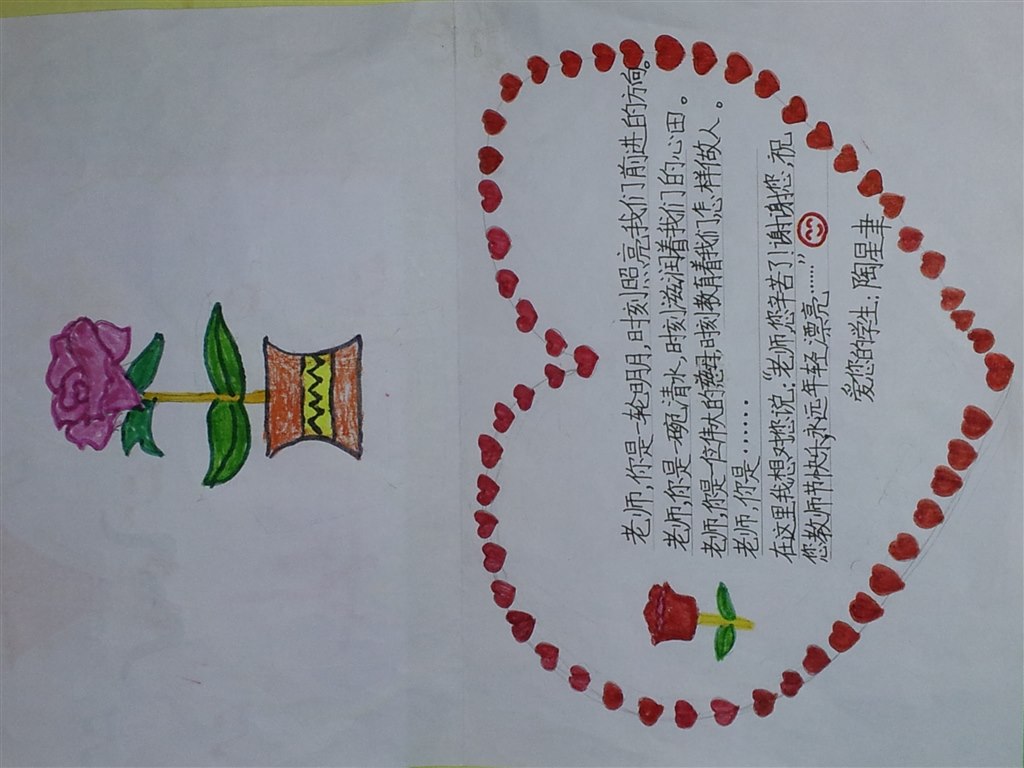 老师,你是一轮明月,时刻照亮我们前进的方向。
老师,你是一碗清水,时刻滋润着我们的心田。
老师,你是一位伟大的慈母,时刻教育着我们怎样做人。
老师,你是……
在这里我想对您说:“老师您辛苦了!谢谢您,祝
您教师节快乐,永远年轻漂亮……”
爱您的学生:陶星聿